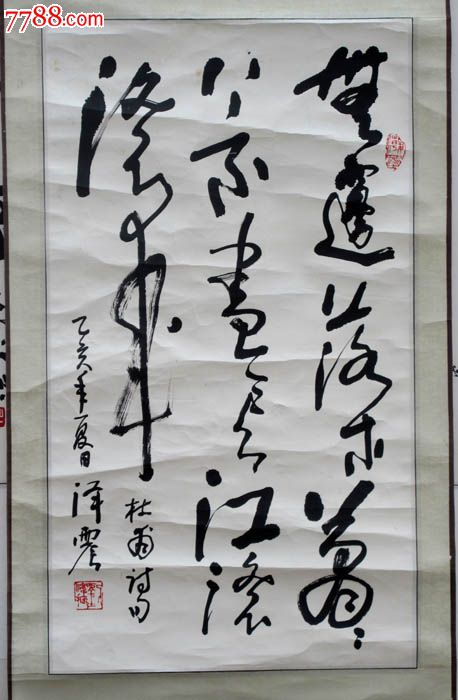 7788.com
無邊落木蕭〻
下不盡長江滾
滾來
杜甫詩句
乙亥年夏日
泽震